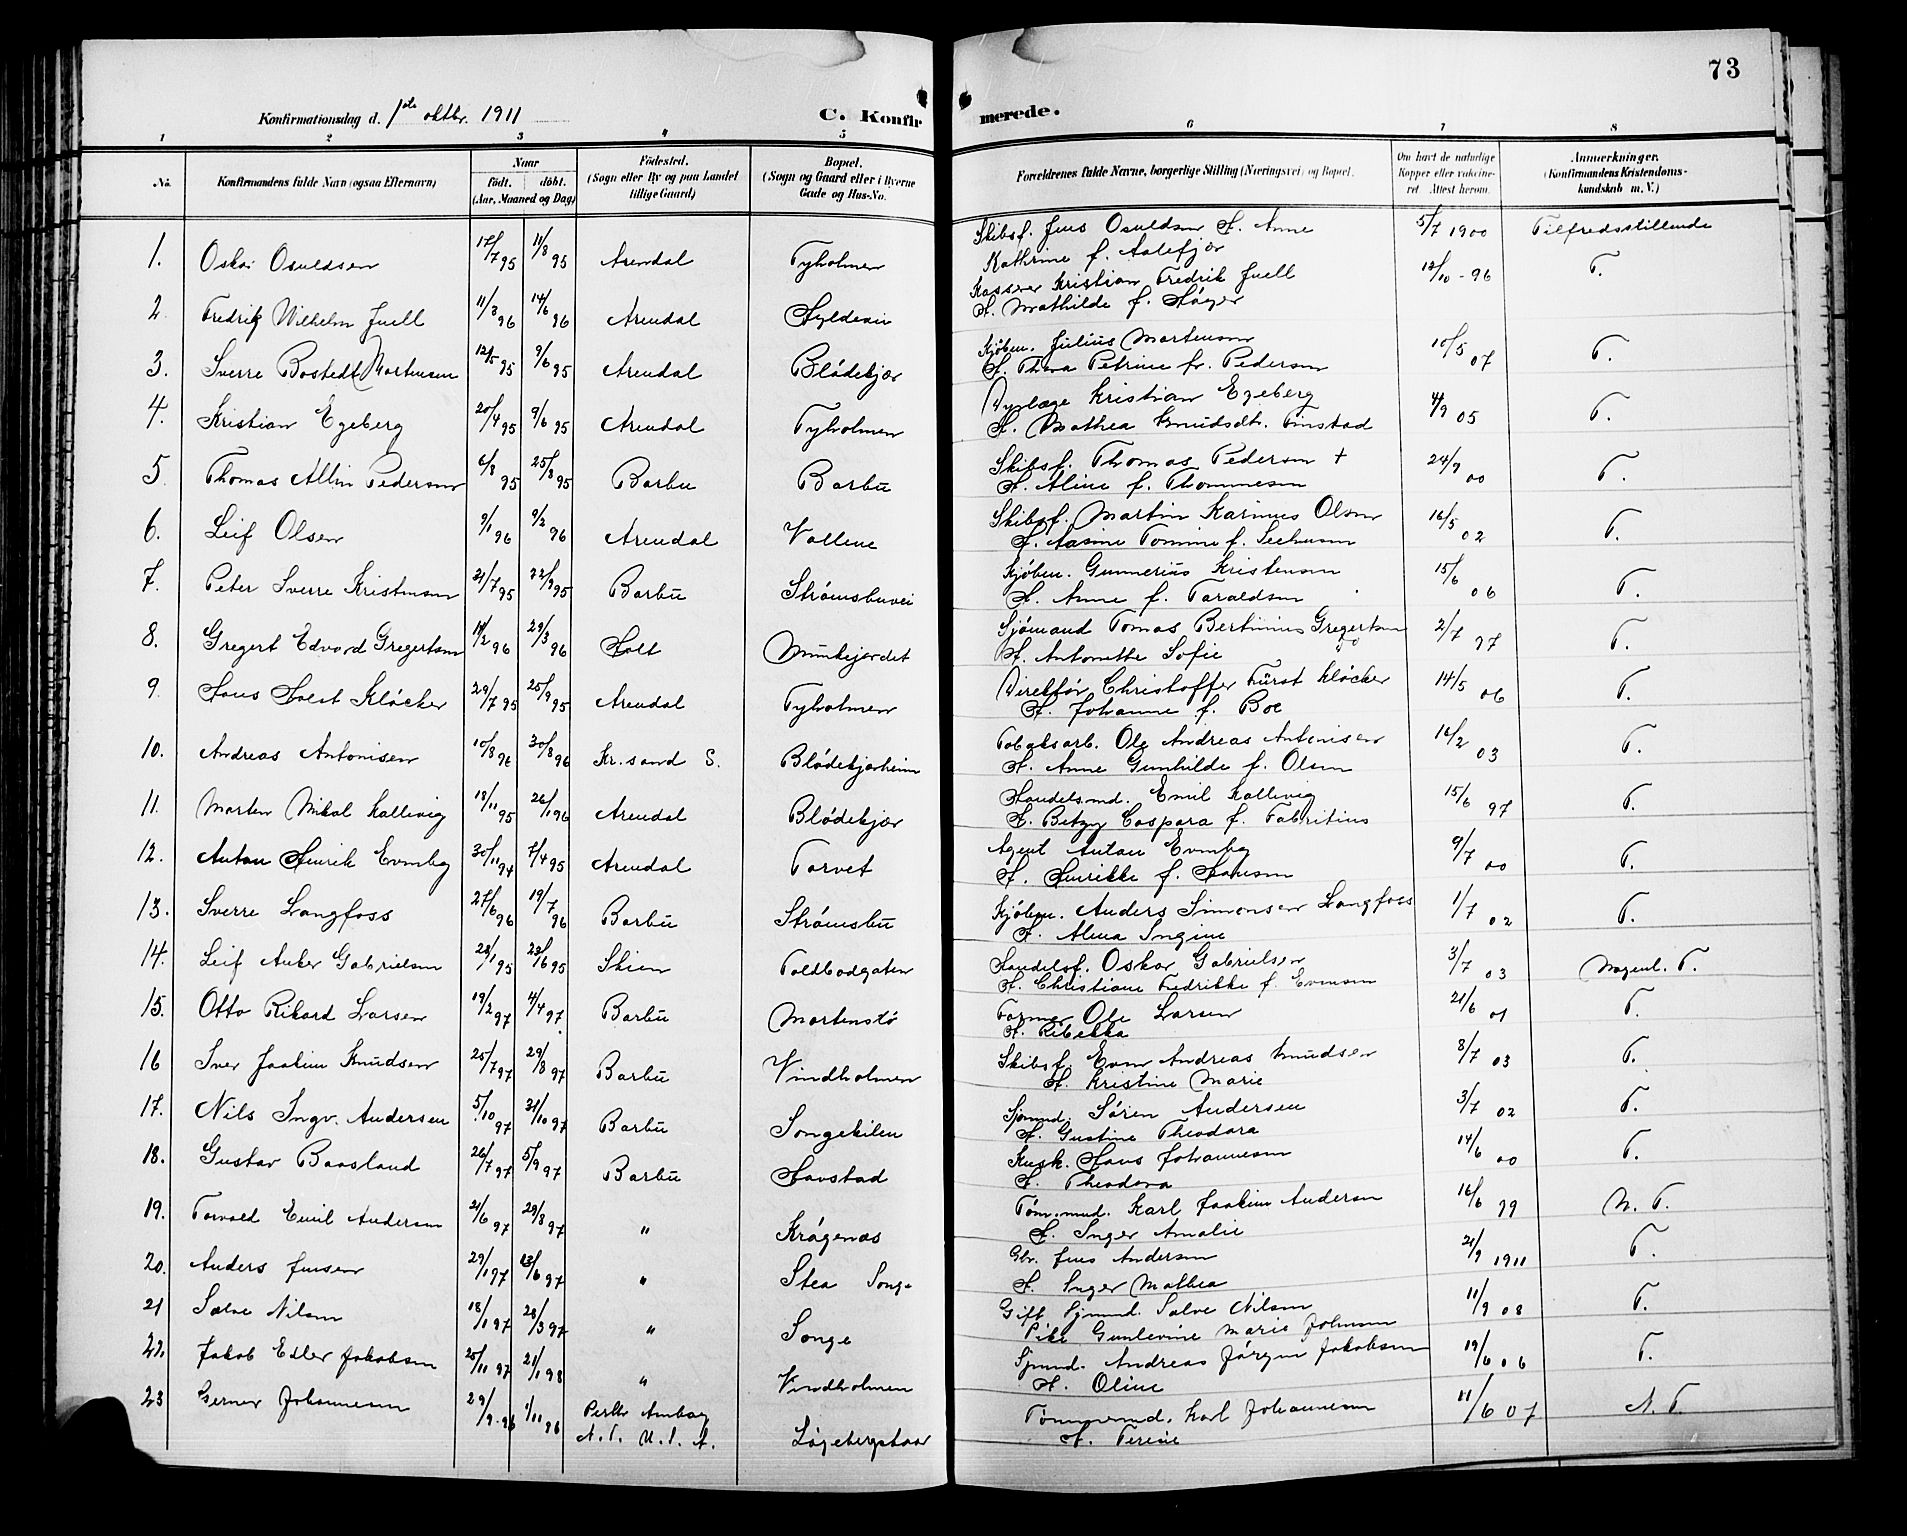 73
Konfirmationsdag d. 1ste oktbr. 1911
C. Konfirmerede.
1 2 3 4 5 6 7 8
No. Konfirmandens fulde Navn (ogsaa Efternavn) Naar født. døbt. (Aar, Maaned og Dag) Fødested. (Sogn eller By og paa Landet tillige Gaard) Bopæl. (Sogn og Gaard eller i Byerne Gade og Hus-No. Forældrenes fulde Navne, borgerlige Stilling (Næringsvei) og Bopæl. Om havt de naturlige Kopper eller vaccineret. Attest herom. Anmerkninger. (Konfirmandens Kristendomskundskab m. V.)
1. Oskar Osuldsen 17/7 95 11/8 95 Arendal Tyholmen Skibsf. Jens Osuldsen H. Anne 5/7 1900 Tilfredsstillende
Kathrine f. Aalefjær
2. Fredrik Wilhelm Juell 11/3 96 14/6 96 Arendal Kasserer Kristian Fredrik Juell 12/10 - 96 T.
H. Mathilde f. Høyer
3. Sverre Bostedt Mortensen 12/5 95 9/6 95 Arendal Blødekjær Kjøbm. Julius Mortensen 10/5 07 T.
H. Thora Petrine f. Pedersen
4. Kristian Egeberg 20/4 95 9/6 95 Arendal Tyholmen Dyrlæge Kristian Egeberg 4/9 05 T.
H. Mathea Knudsdt. Finstad
5. Thomas Allin Pedersen 6/8 95 25/8 95 Barbu Barbu Skibsf. Thomas Pedersen + 24/9 00 T.
H. Aline f. Thommesen
6. Leif Olsen 9/1 96 9/2 96 Arendal Vollene Skibsf. Martin Karinius Olsen 16/5 02 T.
H. Aasine Tomine f. Seehusen
7. Peter Sverre Kristensen 21/7 95 22/9 95 Barbu Strømsbuvei Kjøbm. Gunnerius Kristensen 15/6 06 T.
H. Anne f. Taraldsen
8. Gregert Edvard Gregertsen 14/2 96 29/3 96 Holt Munkejordet Sjømand Tomas Bertinius Gregertsen 2/7 97 T.
H. Antonette Sofie
9. Hans Holst Kløcker 29/7 95 25/9 95 Arendal Tyholmen Direktør Christoffer Fürst Kløcker 14/5 06 T.
H. Johanne f. Boe
10. Andreas Antonisen 10/8 96 30/8 96 Kr.sand S. Blødekjærheien Tobaksarb. Ole Andreas Antonisen 16/2 03 T.
H. Anne Gunhilde f. Olsen
11. Morten Mikal Kallevig 18/11 95 26/1 96 Arendal Blødekjær Handelsmd. Emil Kallevig 15/6 97 T.
H. Betzy Caspara f. Fabritius
12. Anton Henrik Evensby 30/11 94 7/4 95 Arendal Torvet Agent Anton Evensby 9/7 00 T.
H. Henrikke f. Hansen
13. Sverre Langfoss 27/6 96 19/7 96 Barbu Strømsbu Kjøbm. Anders Simonsen Langfoss 1/7 02 T.
H. Alma Ingine
14. Leif Anker Gabrielsen 28/1 95 23/6 95 Skien Toldbodgaten Handelsf. Oskar Gabrielsen 3/7 03 Megenl. T.
H. Christiane Fredrikke f. Evensen
15. Otto Rikard Larsen 19/2 97 4/4 97 Barbu Mortenstø Former Ole Larsen 21/6 01 T.
H. Rebekka
16 Iver Joakim Knudsen 25/7 97 29/8 97 Barbu Vindholmen Skibsf. Even Andreas Knudsen 8/7 03 T.
H. Kristine Marie
17. Nils Ingv. Andersen 5/10 97 31/10 97 Barbu Songekilen Sjømd. Søren Andersen 3/7 02 T.
H. Gustine Theodora
18. Gustav Baasland 26/7 97 5/9 97 Barbu Havstad Kusk. Hans Johannesen 14/6 00 T.
H. Theodora
19. Torvald Emil Andersen 21/6 97 29/8 97 " Krøgenæs Tøm.md. Karl Joakim Andersen 16/6 99 M. T.
H. Inger Amalie
20. Anders Jensen 29/1 97 13/6 97 " Stea Songe Gbr. Jens Andersen 21/9 1911 T.
H. Inger Mathea
21 Salve Nilsen 18/1 97 28/3 97 " Songe Gift Sjømd. Salve Nilsen 11/9 08 T.
Pike Gunlevine Marie Johnsen
22. Jakob Edler Jakobsen 25/11 97 21/1 98 " Vindholmen Sjømd. Andreas Jørgen Jakobsen 19/6 06 T.
H. Oline
23 Gerner Johannesen 29/9 96 1/11 96 Perth Amboy Løgebergsaas Tømmermd. Karl Johannesen 11/6 07 N. T.
N. J. U. S. A. H. Terine